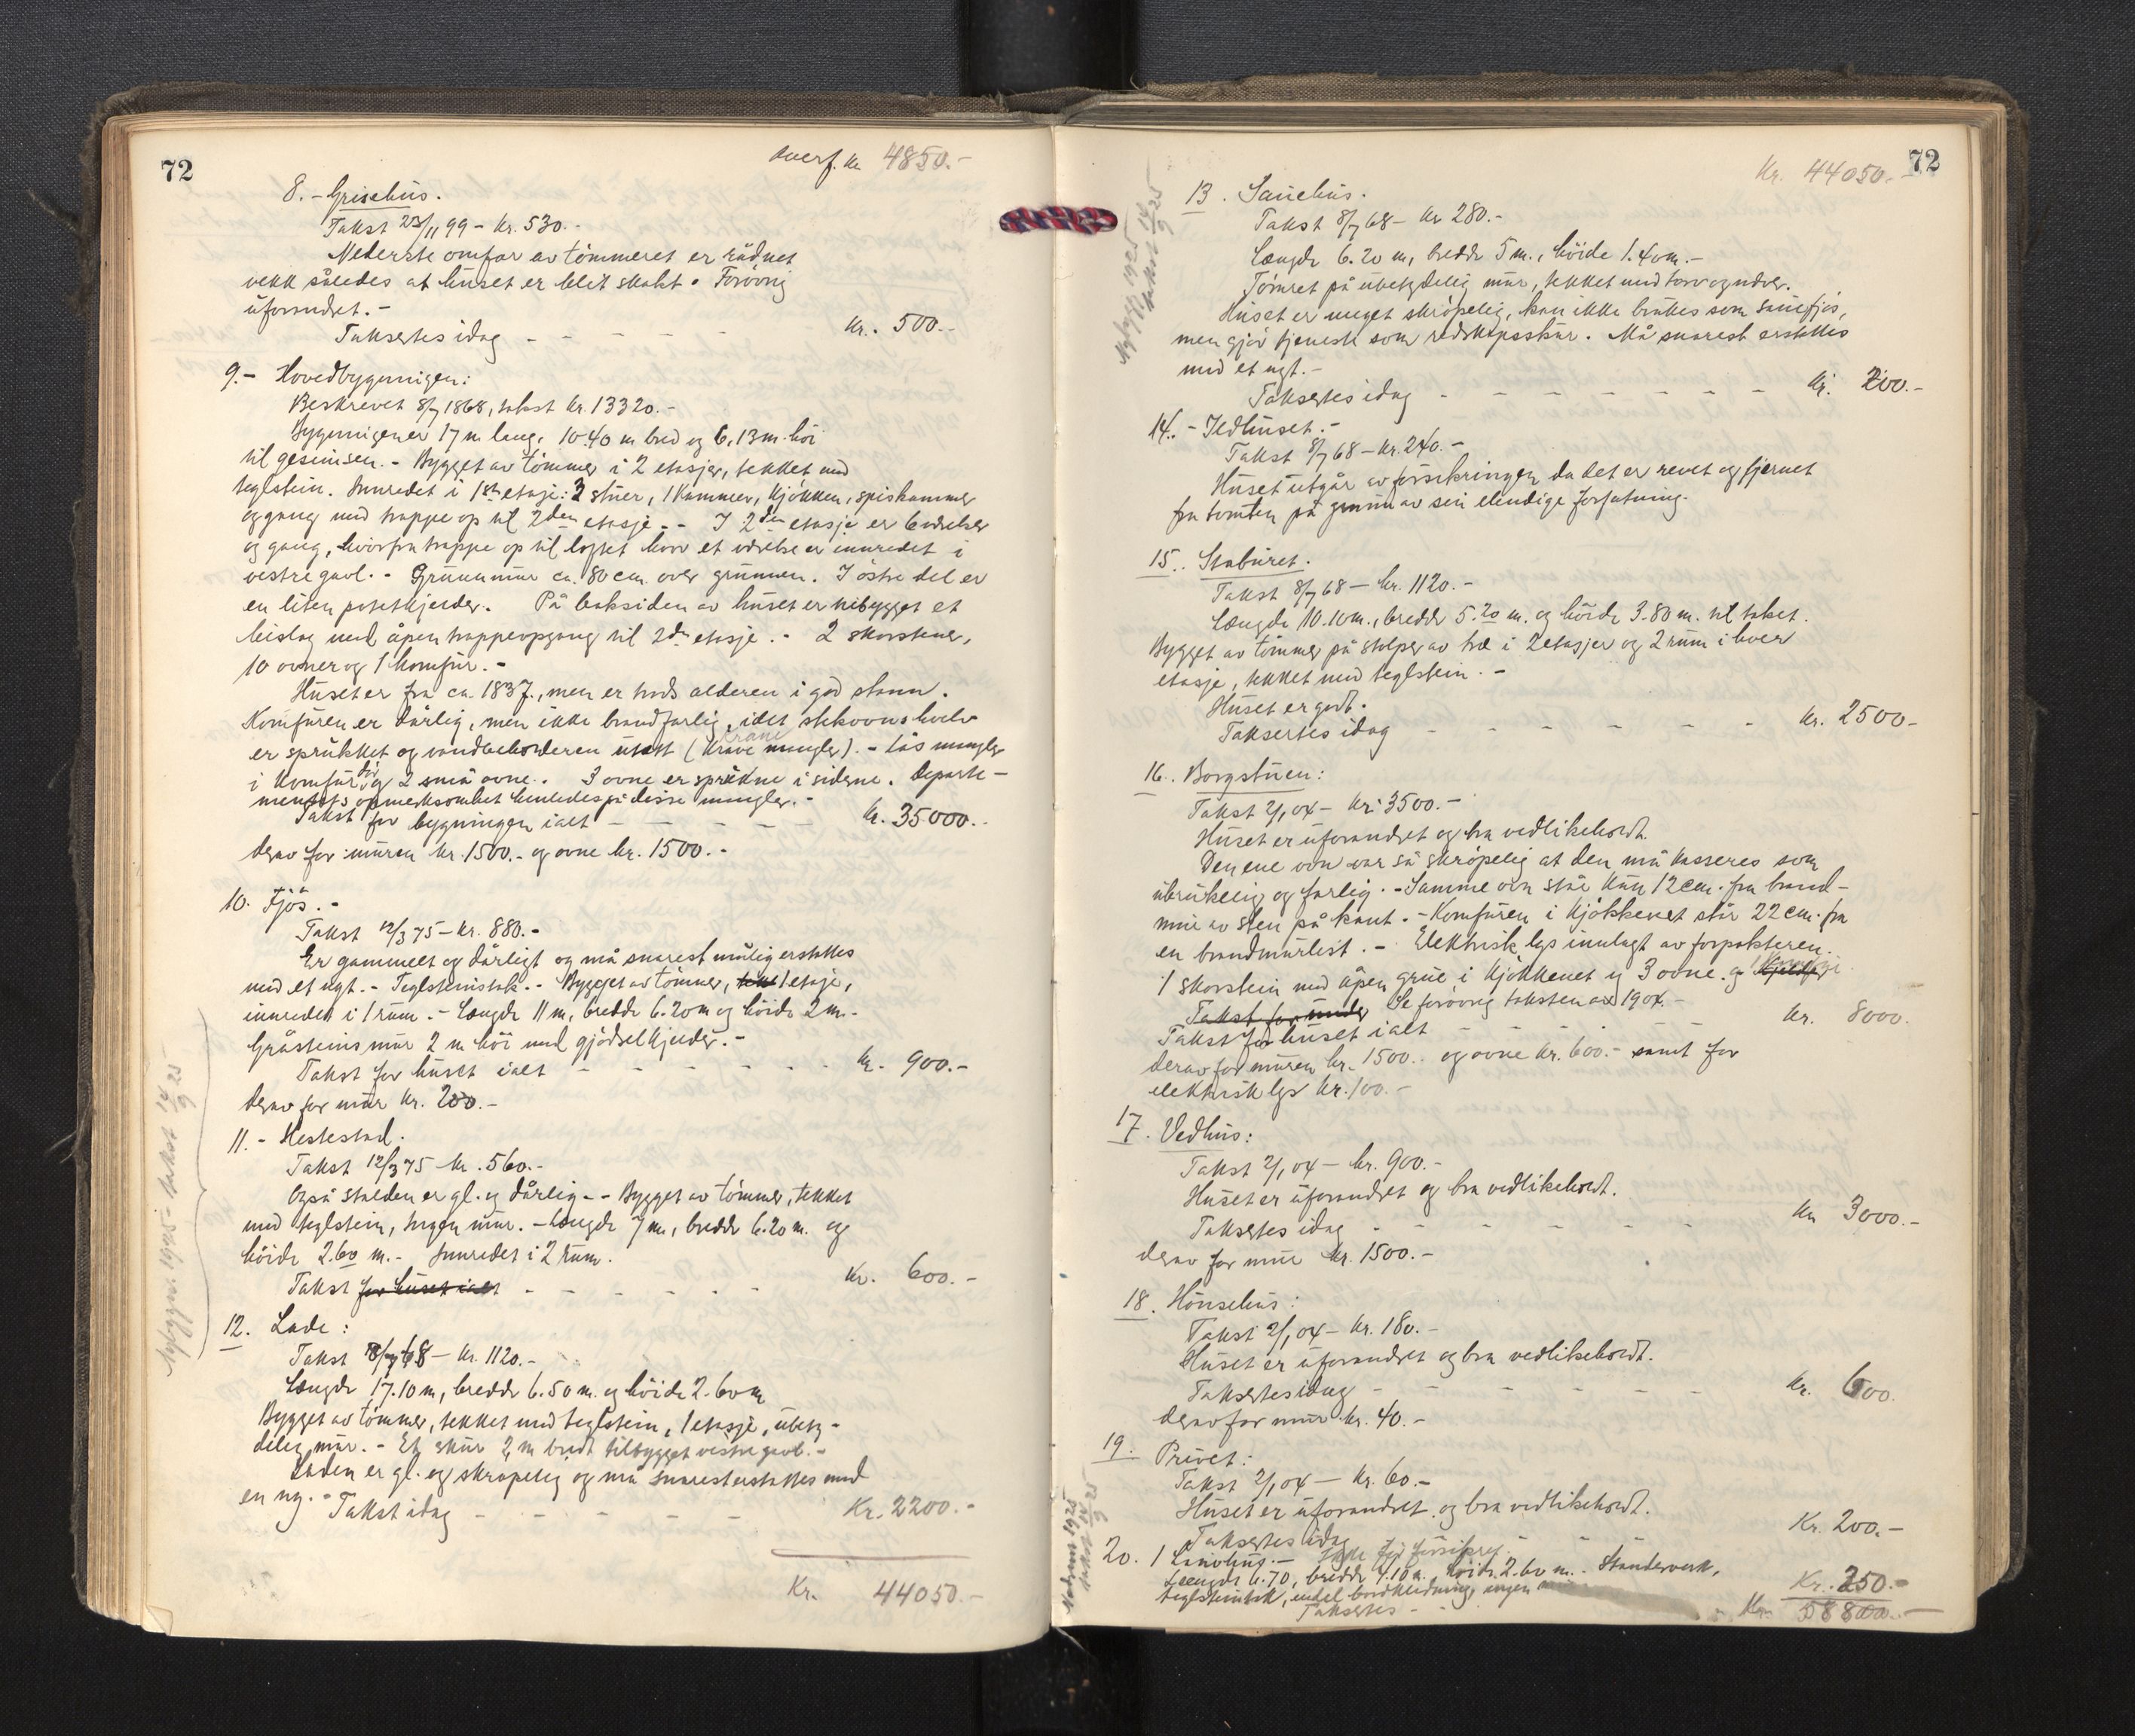 72
Overf. kr 4850.-
8. - Grisehus.
Takst 23/11 99 - Kr. 530.-
Nederste omfar av tømmeret er råtnet
vekk således at huset er blit skakt. Forövrig
uforandret. -
Taksertes idag - - - - - Kr. 500.-
9. - Hovedbygningen:
Beskrevet 8/7 1868, takst Kr. 13320.-
Bygningen er 17 m lang, 10.40 m bred og 6,13 m. høi
til gesimsen. - Bygget av tömmer i 2 etasjer, tekket med
teglstein. Innredet i 1ste etasje: 3 stuer, 1 Kammer, Kjökken, spiskammer
og gang med trappe op til 2den etasje. - I 2den etasje er 6 værelser
og gang, hvorfra trappe op til loftet hvor et værelse er innredet i
vestre gavl. - Grunnmur ca. 80 cm. over grunnen. I östre del er
en liten potetkjeder. På baksiden av huset er tilbygget et
bislag med åpen trappeopgang til 2den etasje. - 2 skorstener,
10 ovner og 1 Komfür. -
Huset er fra ca. 1837, men er trods alderen i god stann.
Komfüren er dårlig, men ikke brandfarlig, idet stekeovns hvelv
er sprükket og vandbeholderen utatt (Krane mangler). - Lås mangler
Krane
i Komfür dör og 2 små ovne. 3 ovne er sprükne i siderne. Departe-
mentets opmerksomhet henledes på disse mangler. -
Takst for bygningen ialt - - - - Kr. 35000.-
derav for müren kr. 1500.- og ovne kr. 1500.-
10. Fjös. -
Takst 12/3 75 - Kr. 880.-
Er gammelt og dårligt og må snarest mulig erstattes
med et nyt. - Teglsteinstak. - Bygget av tömmer, 1 etasje,
innredet i 1 rüm. - Længde 11 m, bredde 6.20 m og höide 2 m. -
Gråsteins mür 2 m höi med gjödselkjeder. -
Takst for huset ialt - - - - - Kr. 900.-
derav for mür Kr. 200.-
11. - Hestestad.
Takst 12/3 75 Kr. 560.-
Også stalden er gl. og dårlig. - - Bygget av tömmer, tekket
med teglstein, ingen mür. - Længde 7 m, bredde 6.20 m. og
höide 2.60 m. - Innredet i 2 rüm.
Takst for huset ialt - - - - - Kr. 600.-
12. Lade:
Takst 8/7 68 - Kr. 1120.-
Længde 17.10 m, bredde 6.50 m. og höide 2.60 m
Bygget av tömmer, tekket med teglstein, 1 etasje, übety-
delig mür. - Et skür 2 m bredt tilbygget vestre gavl. -
Laden er gl. og skröpelig og må snarest erstattes med
en ny. - Takst idag - - - - - Kr. 2200.-
Kr. 44050.-
Nybygget 1925 - takst 14/9 25
72
Kr. 44050.-
13. Sauehus.
Takst 8/7 68 - Kr 280.-
Længde 6.20 m, bredde 5 m., höide 1.40 m. -
Tömret på übetydelig mür, tekket med torv og never.
Huset er meget skröpelig, kan ikke brukes som sauefjös,
men gjör tjeneste som redskapsskür. Må snarest erstattes
med et nyt. -
Taksertes idag - - - - - - - Kr. 200.-
14. - Ildhuset. -
Takst 8/7 68 - Kr. 240.-
Huset utgår av forsikringen da det er revet og fjernet
fra tomten på grunn av sin elendige forfatning.
15. Staburet.
Takst 8/7 68 - kr. 1120.-
Længde 10.10 m., bredde 5.20 m. og höide 3.80 m. til taket.
Bygget av tömmer på stolper av træ i 2 etasjer og 2 rüm i hver
etasje, tekket med teglstein. -
Huset er godt.
Taksertes idag - - - - - - Kr. 2500.-
16. Borgstuen:
Takst 2/1 04 - Kr. 3500.-
Huset er uforandret og bra vedlikeholdt.
Den ene ovn var så skröpelig at den må kasseres som
übrükelig og farlig. - Samme ovn står kün 12 cm. fra brand-
mür av sten på kant. - Komfüren i Kjökkenet står 22 cm. fra
en brandmürlist. - Elektrisk lys innlagt av forpakteren.
1 skorstein med åpen grue i Kjökkenet og 3 ovne og 1 Komfyr.
Takst for under Se forövrig taksten av 1904.-
Takst for huset ialt - - - - - Kr. 8000.
derav for müren kr. 1500.- og ovne Kr. 600.- samt for
elektrisk lys Kr. 100.-
17. Vedhus:
Takst 2/1 04 - kr. 900.-
Huset er uforandret og bra vedlikeholdt.
Taksertes idag - - - - - - - Kr 3000.-
derav for mur Kr. 1500.-
18. Hönsehus:
Takst 2/1 04 - Kr. 180.-
Huset er uforandret og bra vedlikeholdt.
Taksertes idag - - - - - - Kr. 600.
derav for mur kr. 40.-
19. Privet:
Takst 2/1 04 - Kr. 60.-
Huset er uforandret og bra vedlikeholdt.
Taksertes idag - - - - Kr. 200.-
20. 1 - Ikke för forsikret.
Længde 6.70, bredde 4.10 m, höide 2.60 m. - Standerverk,
teglsteintak, endel bordkledning, ingen
Taksertes - - Kr. 250.-
Kr. 58800.-
Nybygg 1925 takst 14/9 25
Nedrevet 1925